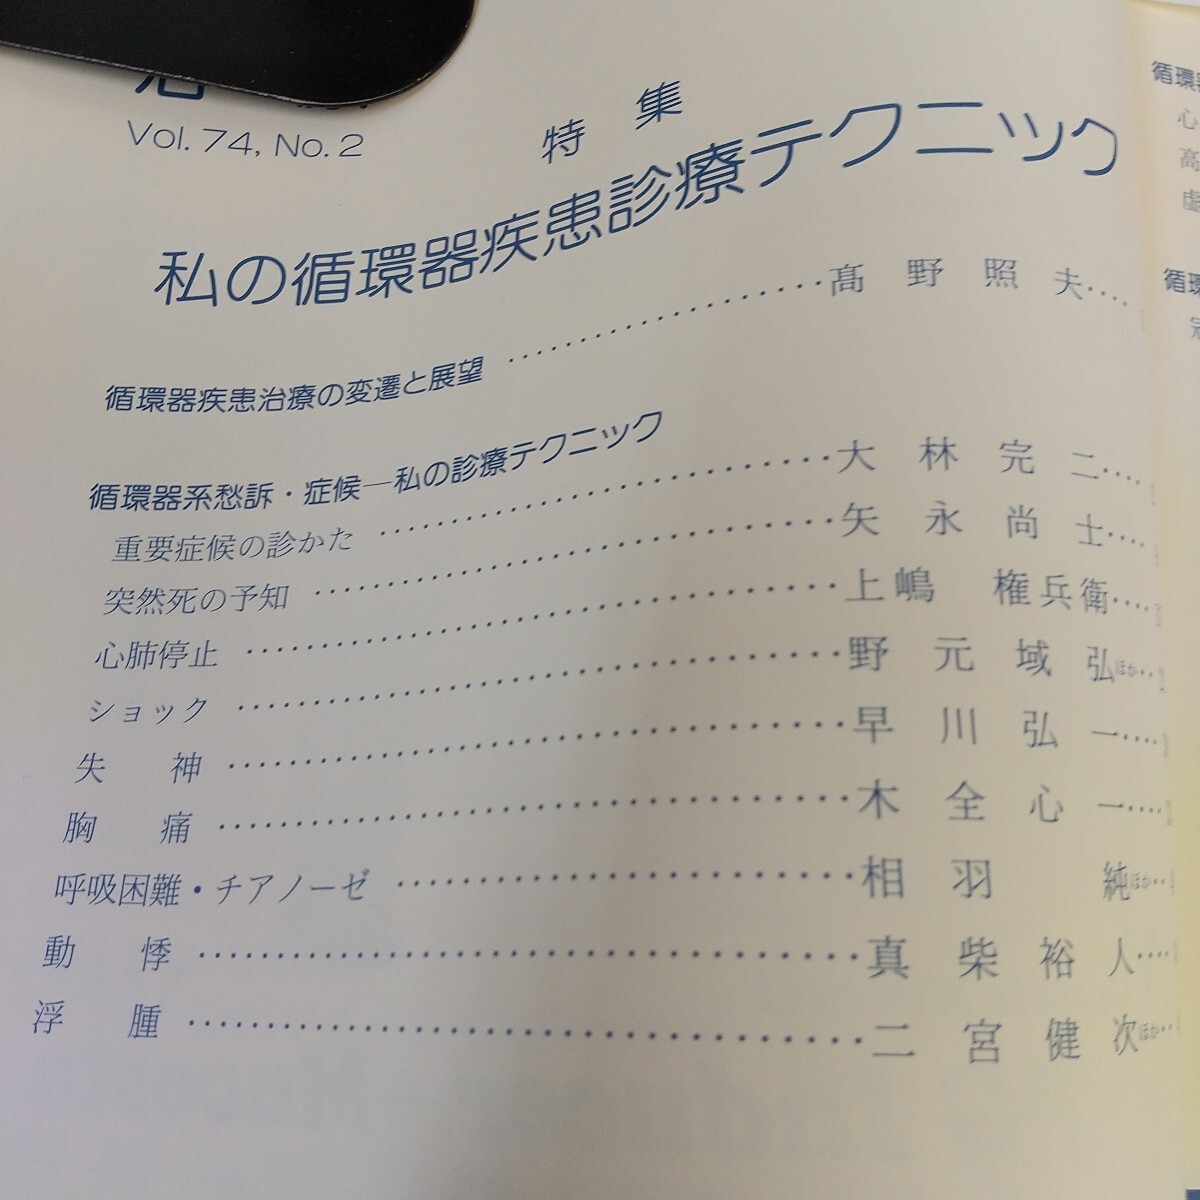 Vol. 74, No. 2
特集
私の循環器疾患診療テクニック
循環器疾患治療の変遷と展望……………………髙野照夫……
循環器系愁訴・症候―私の診療テクニック
重要症候の診かた……………………大林完二……
突然死の予知……………………矢永尚士……
心肺停止……………………上嶋権兵衛……
ショック……………………野元域弘ほか……
失神……………………早川弘一……
胸痛……………………木全心一……
呼吸困難・チアノーゼ……………………相羽純ほか……
動悸……………………真柴裕人……
浮腫……………………二宮健次ほか……
循環
心
高
虚
循環